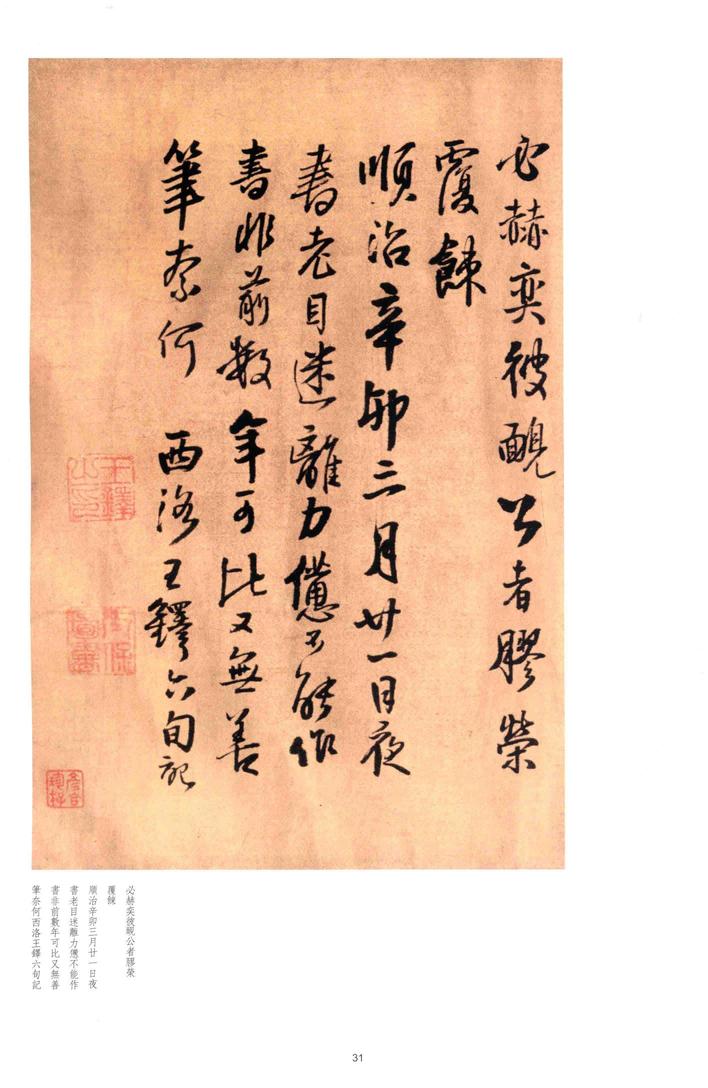 必赫奕彼靦公者膠榮
覆餗
順治辛卯三月廿一日夜
書老目迷離力憊不能作
書非前數年可比又無善
筆奈何 西洛王鐸六旬記
王鐸之印
必赫奕彼靦公者膠榮
覆餗
順治辛卯三月廿一日夜
書老目迷離力憊不能作
書非前數年可比又無善
筆奈何西洛王鐸六旬記
31